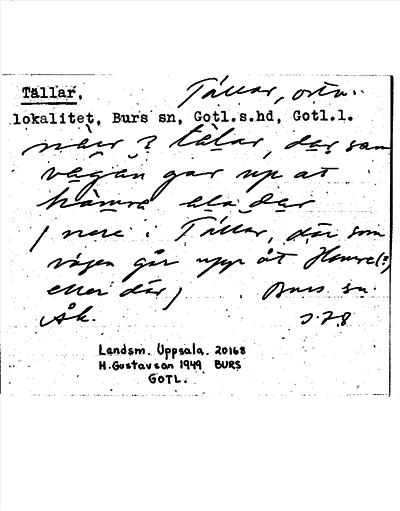 Tällar,
Tällar, ortn.
lokalitet, Burs sn, Gotl.s.hd, Gotl.l.
tälar, dar som
vägän gar up at
hämrä dar
( nere i Tällar, där som
vägen går upp åt Hamre(?)
eller där) Burs sn.
Åk. 5.78
Landsm. Uppsala. 20168
H. Gustavson 1949 BURS
GOTL.